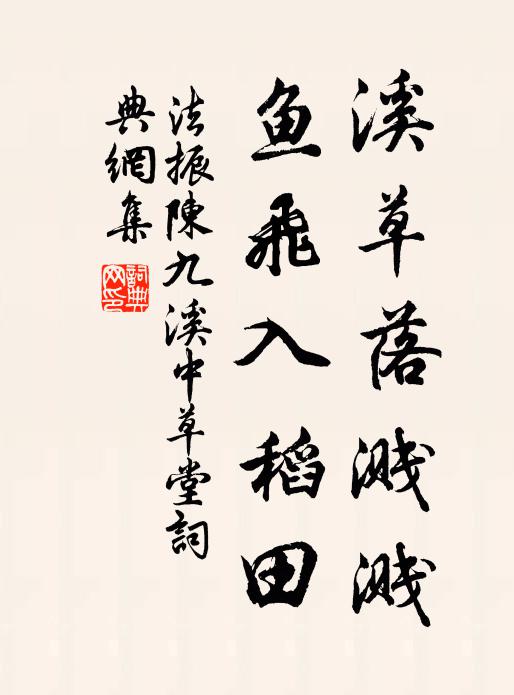 溪草落溅溅
鱼飛入稻田
法振陳九溪中草堂詞
典網集
詞典網印